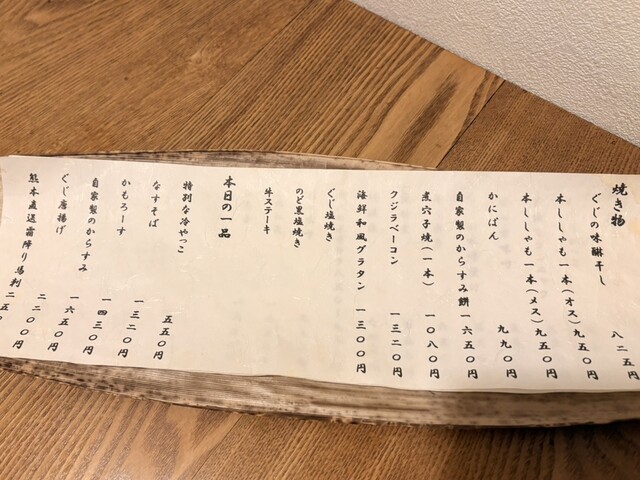 焼き物
ぐじの味醂干し 八二五円
本ししゃも一本(オス)九五〇円
本ししゃも一本(メス)九五〇円
かにぱん 九九〇円
自家製のからすみ餅 一六五〇円
煮穴子焼(一本) 一〇八〇円
クジラベーコン 一三二〇円
海鮮和風グラタン 一三〇〇円
ぐじ塩焼き
のど黒塩焼き
牛ステーキ
本日の一品
特別な冷やっこ 五五〇円
なすそば 一三二〇円
かもろーす 一四三〇円
自家製のからすみ 一六五〇円
ぐじ唐揚げ 二二〇〇円
熊本直送霜降り馬刺 二五